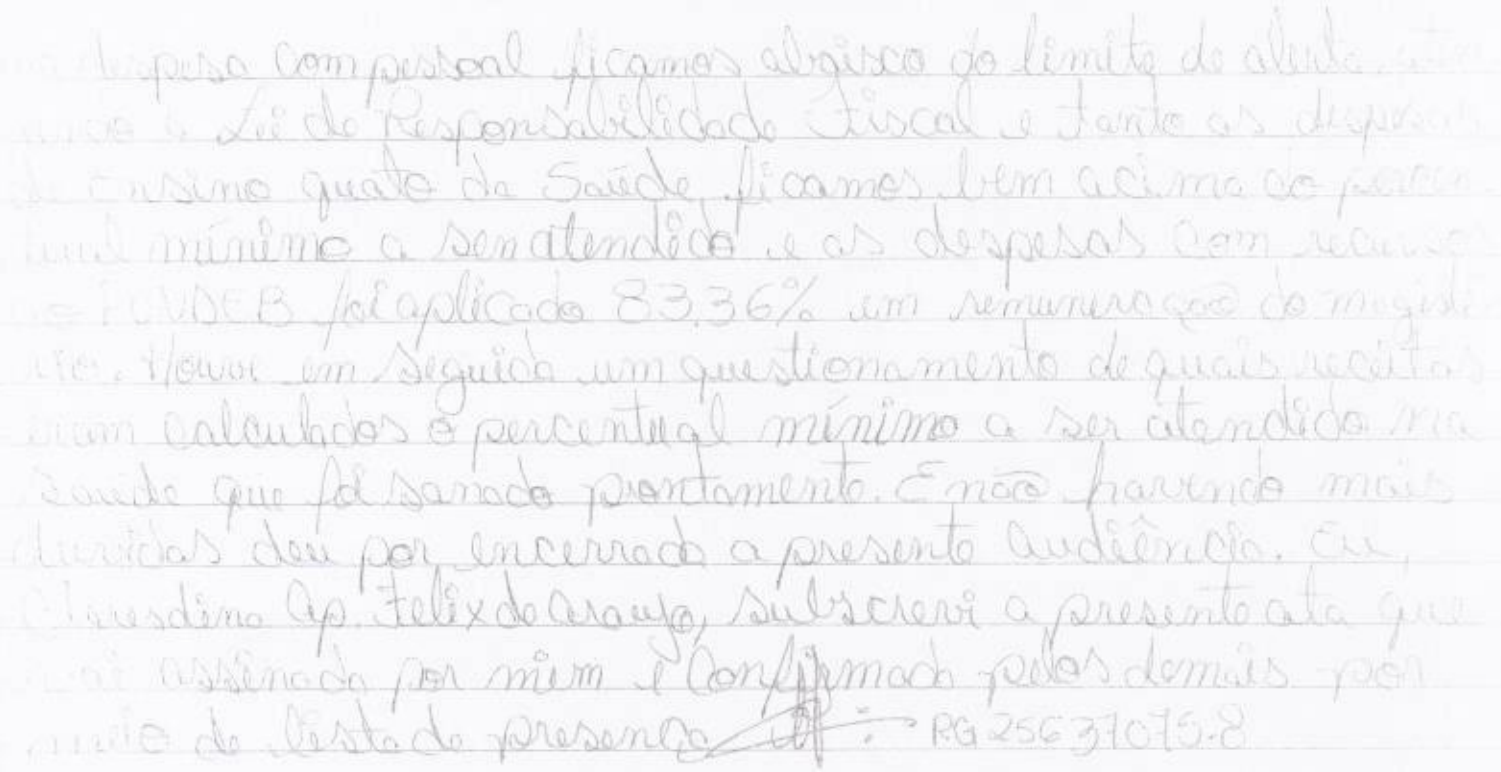 despesa com pessoal ficamos abaixo do limite de alerta
a Lei de Responsabilidade Fiscal e tanto as despesas
de Ensino quato da Saúde ficamos bem acima do percen
tual mínimo a ser atendido e as despesas com recurso
do FUNDEB foi aplicado 83,36% em remuneração do magisté
rio. Houve em seguida um questionamento de quais receitas
calculados o percentual mínimo a ser atendido na
Saúde que foi sanado prontamente. E não havendo mais
duvidas deu por encerrado a presente audiência. Eu,
Ap. Felix de Araujo, subscrevi a presente ata que
vai assinada por mim e confirmada pelos demais por
meio de lista de presença : RG 25637075-8